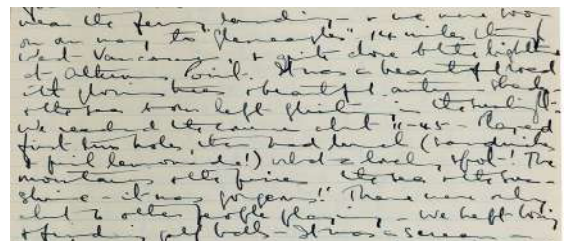 near the ferry landing - & we were soon
on our way to "Gleneagles" 14 miles through
West Vancouver & quite close to the lighthouse
at Atkinson Point. It was a beautiful road
with glorious trees & beautiful autumn shades
& the sea on our left glinting in the sunlight -
We reached the course about 11-45 - Played
first two holes, then had lunch (sandwiches
& pink lemonade!) what a lovely spot! The
mountains & the pines & the sea & the sun-
shine - it was gorgeous!! There were only
about 6 other people playing - we kept losing
& finding golf balls - It was a scream -